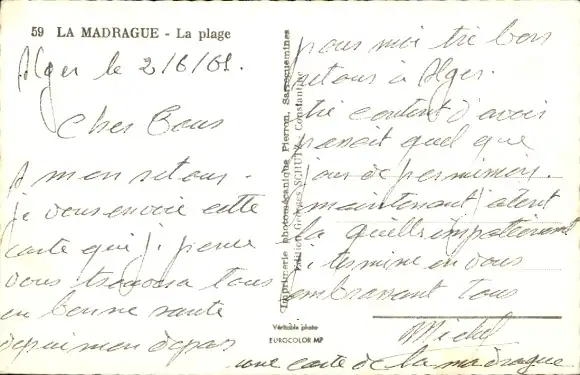 59 LA MADRAGUE - La plage
Alger le 2/6/61.
Cher Tous
A mon retour.
Je vous envoie cette
carte qui j'i pense
vous trouvera tous
en bonne sante
depui mon depas
pour moi tré bon
retour à Alger.
tré contant d'avoir
passait quel que
jour de permission.
maintenant j'atent
la quille impatiament
j'i termine en vous
embrassant tous
Michel
une carte de la madrague
Imprimerie photomécanique Pierron, Sarreguemines
Edition Georges SCHULTZ - Constantine
Véritable photo
EUROCOLOR MP